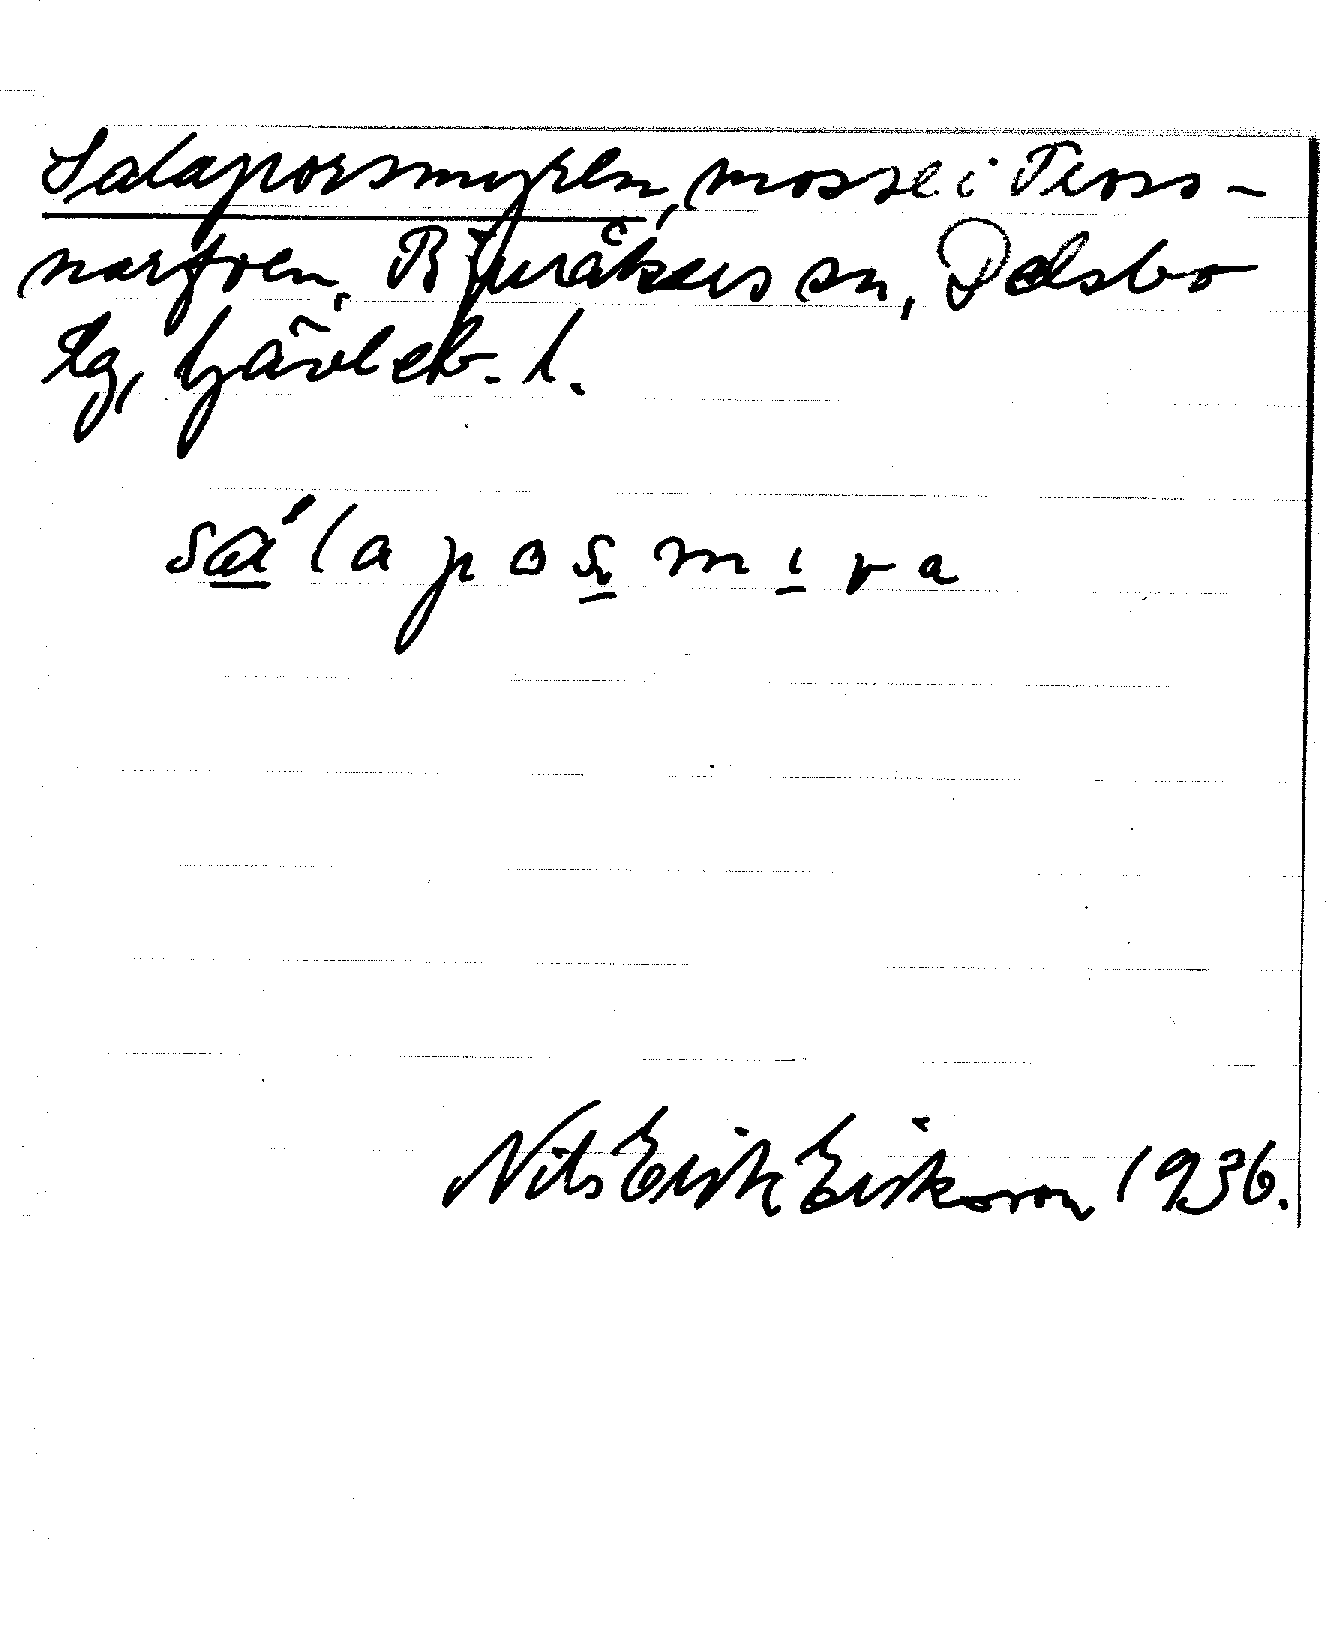 Salaporsmyren, mosse i Tross-
narfven, Bjuråkers sn, Delsbo
tg, Gävleb. l.
sa̱ ́laposm̱ıra
Nils Erik Eriksson 1936.